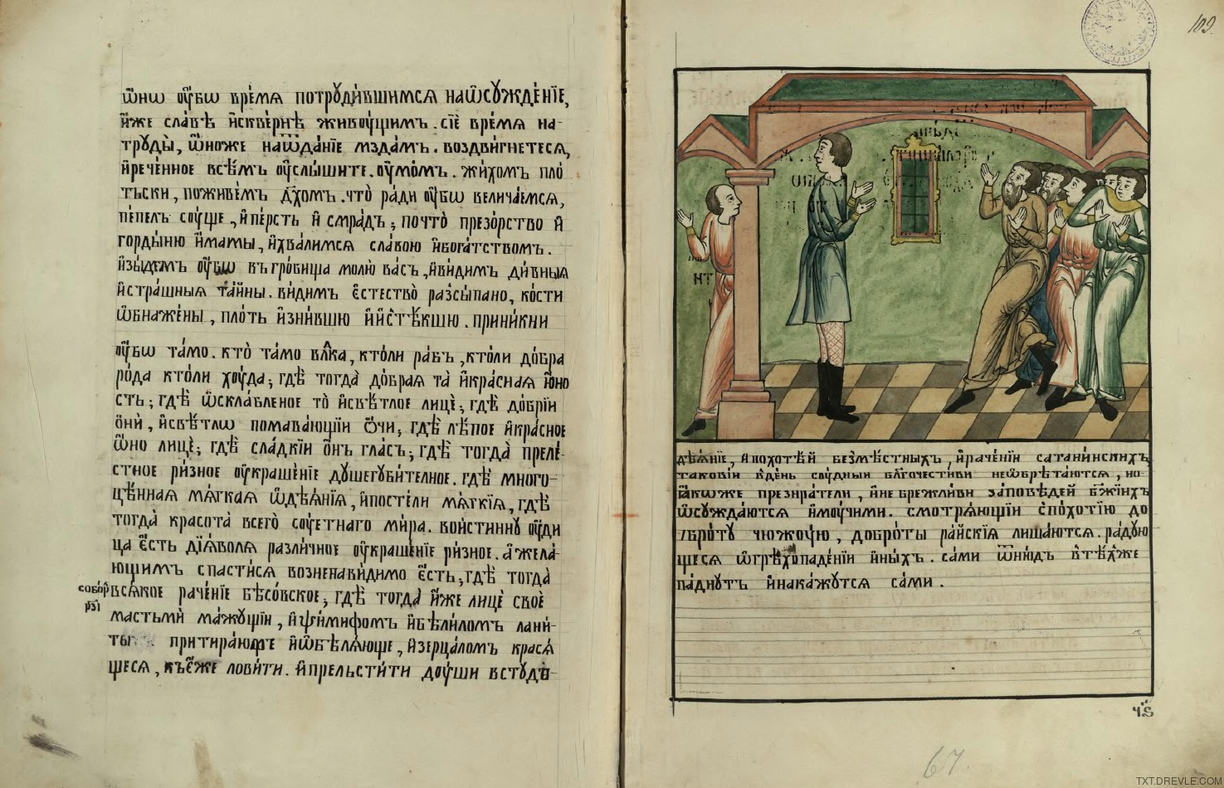 ѿнѡ оу҆бѡ время потруди́вшимся наѡ҆сужде́нїе,
и҆́же сла́вѣ и҆скве́рнѣ живоу́щимъ. сїѐ вре́мя на-
труды̀, ѡ҆́ноже наѿда́нїе мзда́мъ. воздви́гнетеся,
и҆рече́нное всѣ́мъ оу҆слы́шите. оу҆мо́мъ. жи́хомъ пло
тьски, поживе́мъ дх҃омъ. что̀ ра́ди оу҆́бѡ велича́емся,
пе́пелъ соу́ще, и҆пе́рсть и҆ смра́дъ; почто̀ презо́рство и҆
горды́ню и҆́мамы, и҆хва́лимся сла́вою и҆бога́тствомъ.
и҆зы́демъ оу҆́бѡ въгро́бища молю̀ ва́съ, и҆ви́димъ ди́вныя
и҆стра́шныя та́йны. ви́димъ є҆стество̀ разсы́пано, ко́сти
ѡ҆бнаже́ны, пло́ть и҆згни́вшю и҆и҆сте́кшю. прини́кни
оу҆́бѡ та́мо. кто̀ та́мо влⷣка, кто́ли ра́бъ, кто́ли до́бра
ро́да кто́ли хоу́да; гдѣ̀ тогда̀ до́брая та̀ и҆кра́сная ю҆но
сть; гдѣ̀ ѡ҆скла́бленое то̀ и҆свѣ́тлое лицѐ; гдѣ̀ до́брїи
ѻ҆нѝ, и҆свѣ́тлѡ помава́ющїи ѻ҆́чи; гдѣ̀ лѣ́пое и҆кра́сное
ѡ҆́но лицѐ; гдѣ̀ сла́дкїи ѻ҆́нъ гла́съ; гдѣ̀ тогда̀ преле́-
стное ри́зное оу҆краше́нїе душегуби́тельное. гдѣ̀ много-
цѣ́нная мя́гкая ѡ҆дѣя́нїя, и҆посте́ли мя́гкїя, гдѣ̀
тогда̀ красота̀ всего̀ соу́етнаго ми́ра. вои́стинну оу҆ди
ца є҆́сть дїа́воля разли́чное оу҆краше́нїе ри́зное. а҆жела́-
ющимъ спасти́ся возненави́димо є҆́сть; гдѣ̀ тогда̀
собо́р рз҃і
вся́кое раче́нїе бѣсо́вское; гдѣ̀ тогда̀ и҆́же лицѐ своѐ
мастьмѝ ма́жущїи, и҆ѱими́ѳомъ и҆бѣли́ломъ лани́-
ты притира́юще и҆ѡ҆бѣля́юще, и҆зерца́ломъ крася́
щеся, къє҆́же лови́ти. и҆прельсти́ти ду́ши встудо-
109.
дѣѧ́нїе, и҆похоте́й безмѣ́стныхъ, и҆раче́нїи сатани́нскихъ
такові́и вде́нь соу́дныи бл҃гочести́ви неѡ҆брѣта́ются, но
ꙗ҆́коже презира́тели, и҆небрежли́ви за́повѣдей бж҃їихъ
ѡ҆сужда́ются и҆му́чими. смотря́ющїи спо́хотїю до
бро́ту чюжо́ую, добро́ты ра́йскїя лиша́ются. ра́дую
щеся ѡ҆грѣхопаде́нїи и҆ны́хъ. са́ми ѿню́дъ втѣ́хже
паду́тъ и҆нака́жутся са́ми.
чѕ҃
67.
TXT.DREVLE.COM